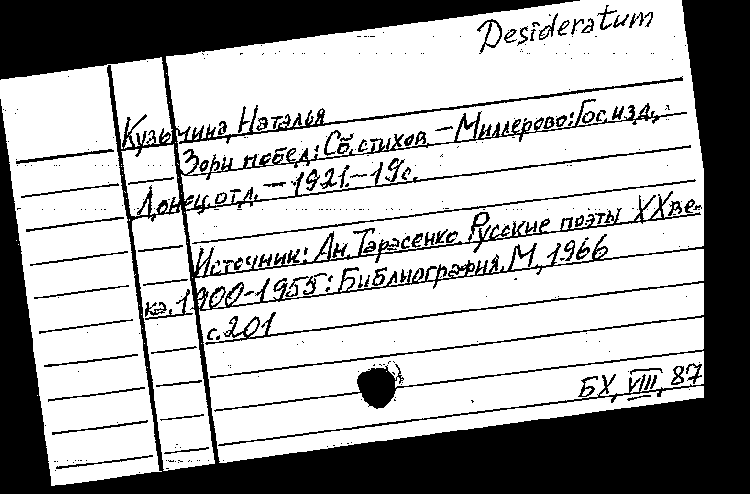 Desideratum
Кузьмина, Наталья
Зори побед: Сб. стихов. – Миллерово: Гос. изд.,
Донец. отд. – 1921. – 19 с.
Источник: Ан. Тарасенко. Русские поэты XX ве-
ка. 1900-1955: Библиография. М., 1966
с. 201
БХ, VIII, 87